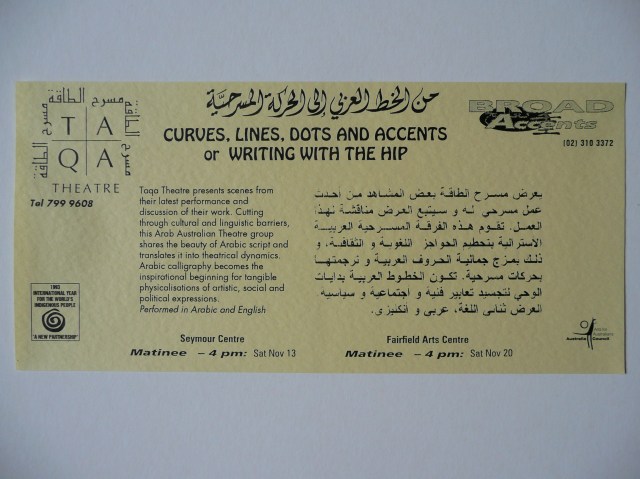 مسرح الطاقة
مسرح الطاقة
مسرح الطاقة
مسرح الطاقة
T A
Q A
THEATRE
Tel 799 9608
من الخط العربي إلى الحركة المسرحيَّة
CURVES, LINES, DOTS AND ACCENTS
or WRITING WITH THE HIP
BROAD
Accents
(02) 310 3372
Taqa Theatre presents scenes from
their latest performance and
discussion of their work. Cutting
through cultural and linguistic barriers,
this Arab Australian Theatre group
shares the beauty of Arabic script and
translates it into theatrical dynamics.
Arabic calligraphy becomes the
inspirational beginning for tangible
physicalisations of artistic, social and
political expressions.
Performed in Arabic and English
يعرض مسرح الطاقة بعض المشاهد من احدث
عمل مسرحي له و سيتبع العرض مناقشة لهذا
العمل. تقوم هذه الفرقة المسرحية العربية
الاسترالية بتحطيم الحواجز اللغوية و الثقافية، و
ذلك بمزج جمالية الحروف العربية و ترجمتها
بحركات مسرحية. تكون الخطوط العربية بدايات
الوحي لتجسيد تعابير فنية و اجتماعية و سياسية.
العرض ثنائي اللغة، عربي و أنكليزي.
1993
INTERNATIONAL YEAR
FOR THE WORLD'S
INDIGENOUS PEOPLE
"A NEW PARTNERSHIP"
Seymour Centre
Matinee – 4 pm: Sat Nov 13
Fairfield Arts Centre
Matinee – 4 pm: Sat Nov 20
Australia Council